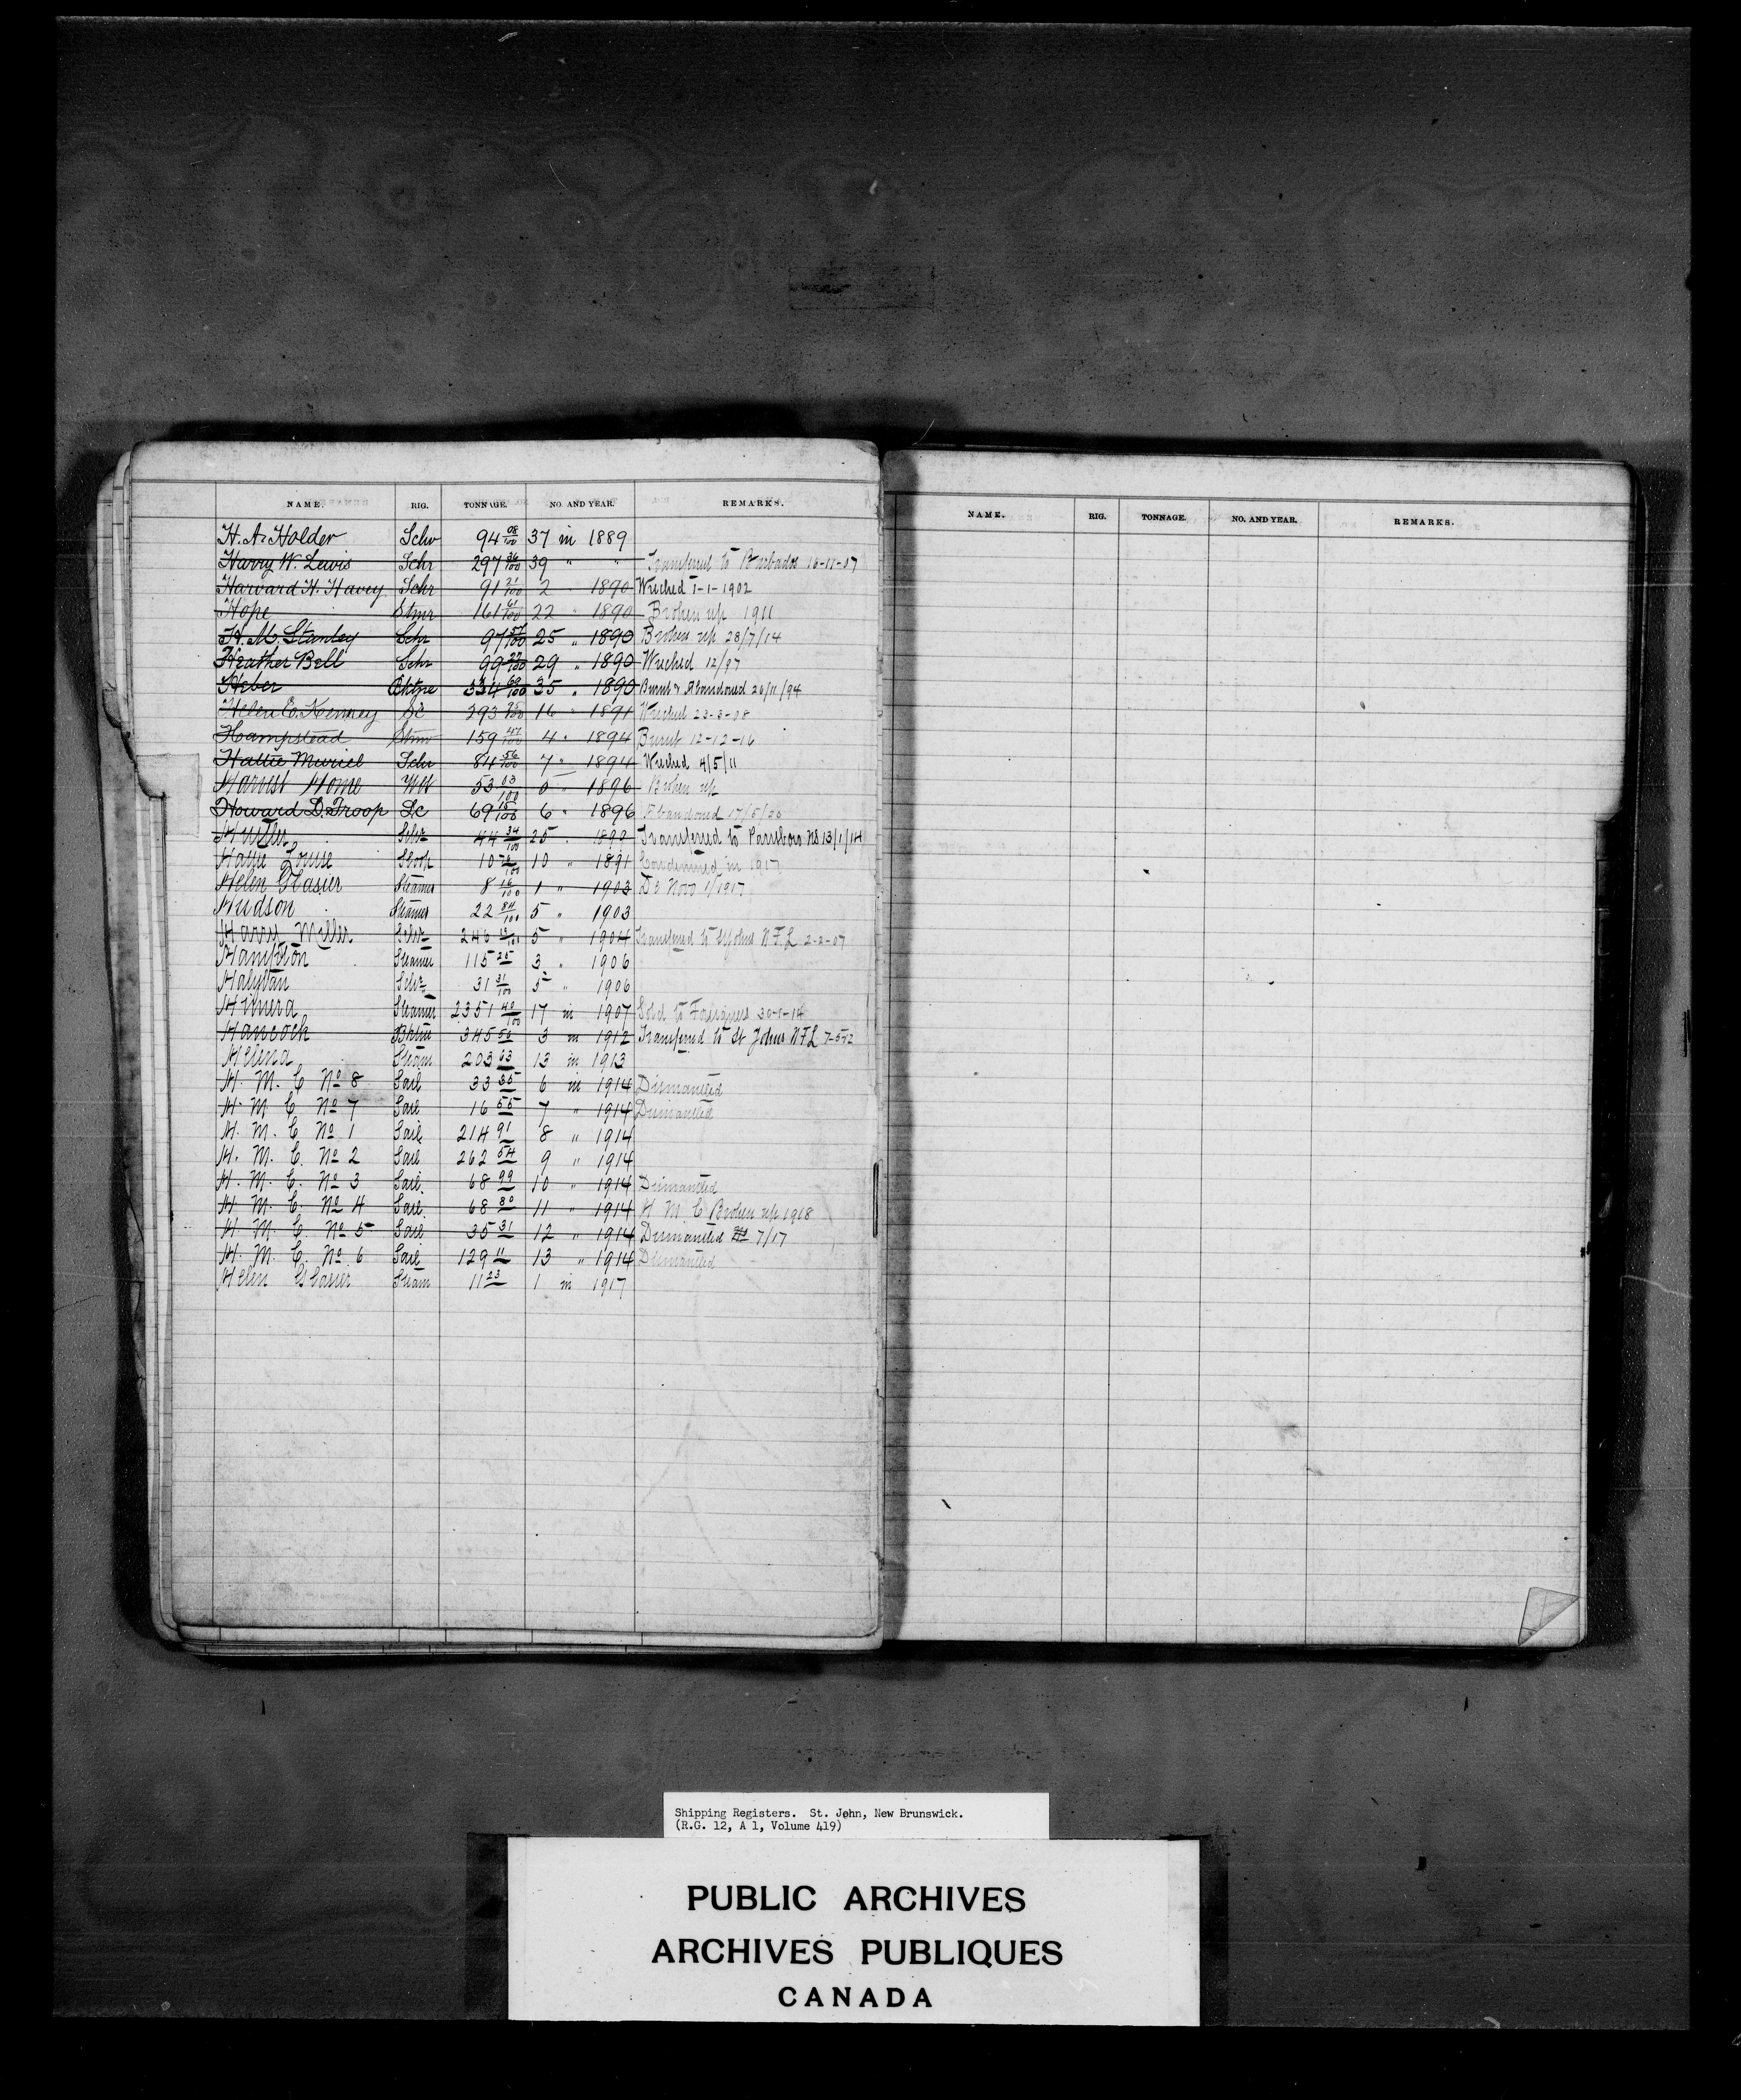 NAME. RIG. TONNAGE. NO. AND YEAR. REMARKS.
H. A. Holder Schr 94 08/100 37 in 1889
Harry W. Lewis Schr 297 36/100 39 " " Transferred to Barbados 16-11-07
Harvard H. Havey Schr 91 21/100 2 " 1890 Wrecked 1-1-1902
Hope Stmr 161 61/100 22 " 1890 Broken up 1911
H. M. Stanley Schr 97 25 " 1890 Broken up 28/7/14
Heather Bell Schr 99 29 " 1890 Wrecked 12/97
Heber Bktne 334 60/100 35 " 1890 Burnt & Abandoned 26/11/94
Helen E. Kenney Sc 293 16 " 1891 Wrecked 23-3-08
Hampstead Stmr 159 47/100 4 " 1894 Burnt 12-12-16
Hattie Muriel Schr 84 56/100 7 " 1894 Wrecked 4/5/11
Harvest Home 53 03/100 5 " 1896 Broken up
Howard D. Troop Sc 69 15/100 6 " 1896 Abandoned 17/5/20
Hustler Schr 44 34/100 25 " Transferred to Parrsboro NS 13/1/14
Louise Sloop 10 10 " 1891 Condemned in 1917
Helen Glasier Steamer 8 16/100 1 " 1903 De Novo 1/1917
Hudson Steamer 22 84/100 5 " 1903
Harry Miller Schr 246 13/100 5 " 1904 Transferred to St Johns N.F.L 2-2-07
Hampton Steamer 115 25 3 " 1906
Schr 31 31/100 5 " 1906
Himera Steamer 2351 40/100 17 in 1907 Sold to Foreigners
Hancock Bktne 345 50 3 in 1912 Transferred to St Johns N.F.L
Helena Steam 203 63 13 in 1913
H. M. C No 8 Sail 33 35 6 in 1914 Dismantled
H. M C No 7 Sail 16 55 7 " 1914 Dismantled
H. M. C No 1 Sail 214 91 8 " 1914
H. M. C. No 2 Sail 262 54 9 " 1914
H. M. C. No 3 Sail. 68 99 10 " 1914 Dismantled
H M. C. No 4 Sail. 68 80 11 " 1914 H M. C Broken up 1918
H M. C. No 5 Sail 35 31 12 " 1914 Dismantled 7/17
H. M. C. No 6 Sail 129 11 13 " 1914 Dismantled
Helen Glasier Steam 11 23 1 in 1917
NAME. RIG. TONNAGE. NO. AND YEAR. REMARKS.
Shipping Registers. St. John, New Brunswick.
(R.G. 12, A 1, Volume 419)
PUBLIC ARCHIVES
ARCHIVES PUBLIQUES
CANADA